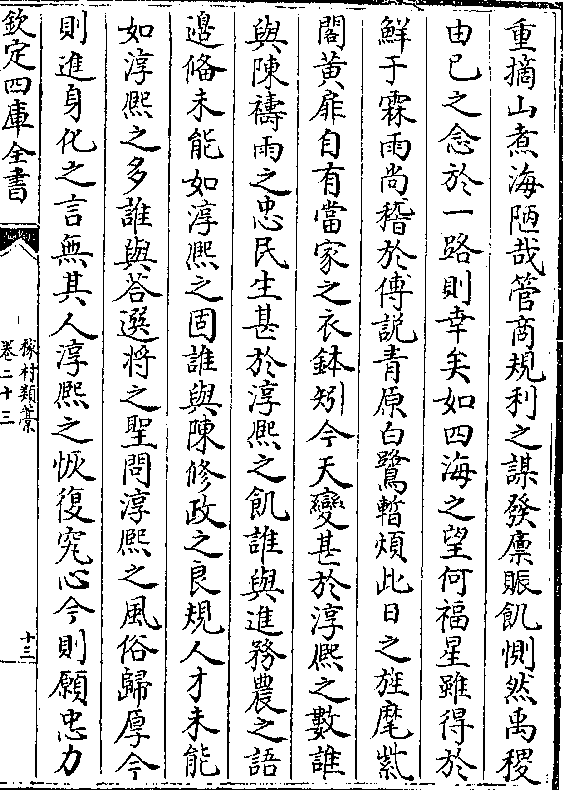 重摘山煮海陋哉管商規利之謀發廩賑飢惻然禹稷
由已之念於一路則幸矣如四海之望何福星雖得於
鮮于霖雨尚稽於傅說青原白鷺暫煩此日之旌麾紫
閣黃扉自有當家之衣鉢矧今天變甚於淳熙之數誰
與陳禱雨之忠民生甚於淳熙之飢誰與進務農之語
邊俻未能如淳熙之固誰與陳修政之良規人才未能
如淳熙之多誰與荅選将之聖問淳熙之風俗歸厚今
則進身化之言無其人淳熙之恢復究心今則願忠力
欽定四庫全書
稼村類藁
卷二十三
十三